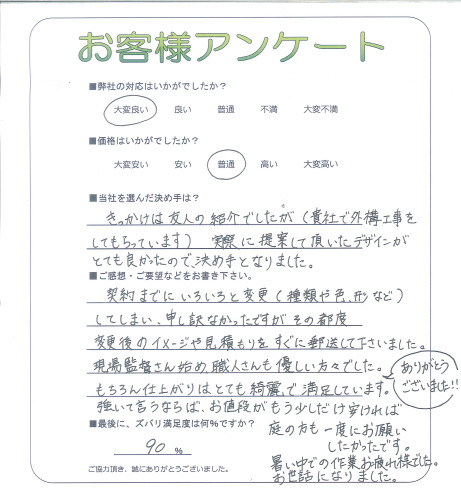 お客様アンケート
■弊社の対応はいかがでしたか？
大変良い 良い 普通 不満 大変不満
■価格はいかがでしたか？
大変安い 安い 普通 高い 大変高い
■当社を選んだ決め手は？
きっかけは友人の紹介でしたが（貴社で外構工事を
してもらっています）実際に提案して頂いたデザインが
とても良かったので、決め手となりました。
■ご感想・ご要望などをお書き下さい。
契約までにいろいろと変更（種類や色、形など）
してしまい、申し訳なかったですがその都度
変更後のイメージや見積もりをすぐに郵送して下さいました。
現場監督さん始め、職人さんも優しい方々でした。
もちろん仕上がりはとても綺麗で満足しています。
ありがとう
ございました!!
強いて言うならば、お値段がもう少しだけ安ければ
庭の方も一度にお願い
したかったです。
暑い中での作業お疲れ様でした。
お世話になりました。
■最後に、ズバリ満足度は何%ですか？
90 %
ご協力頂き、誠にありがとうございました。